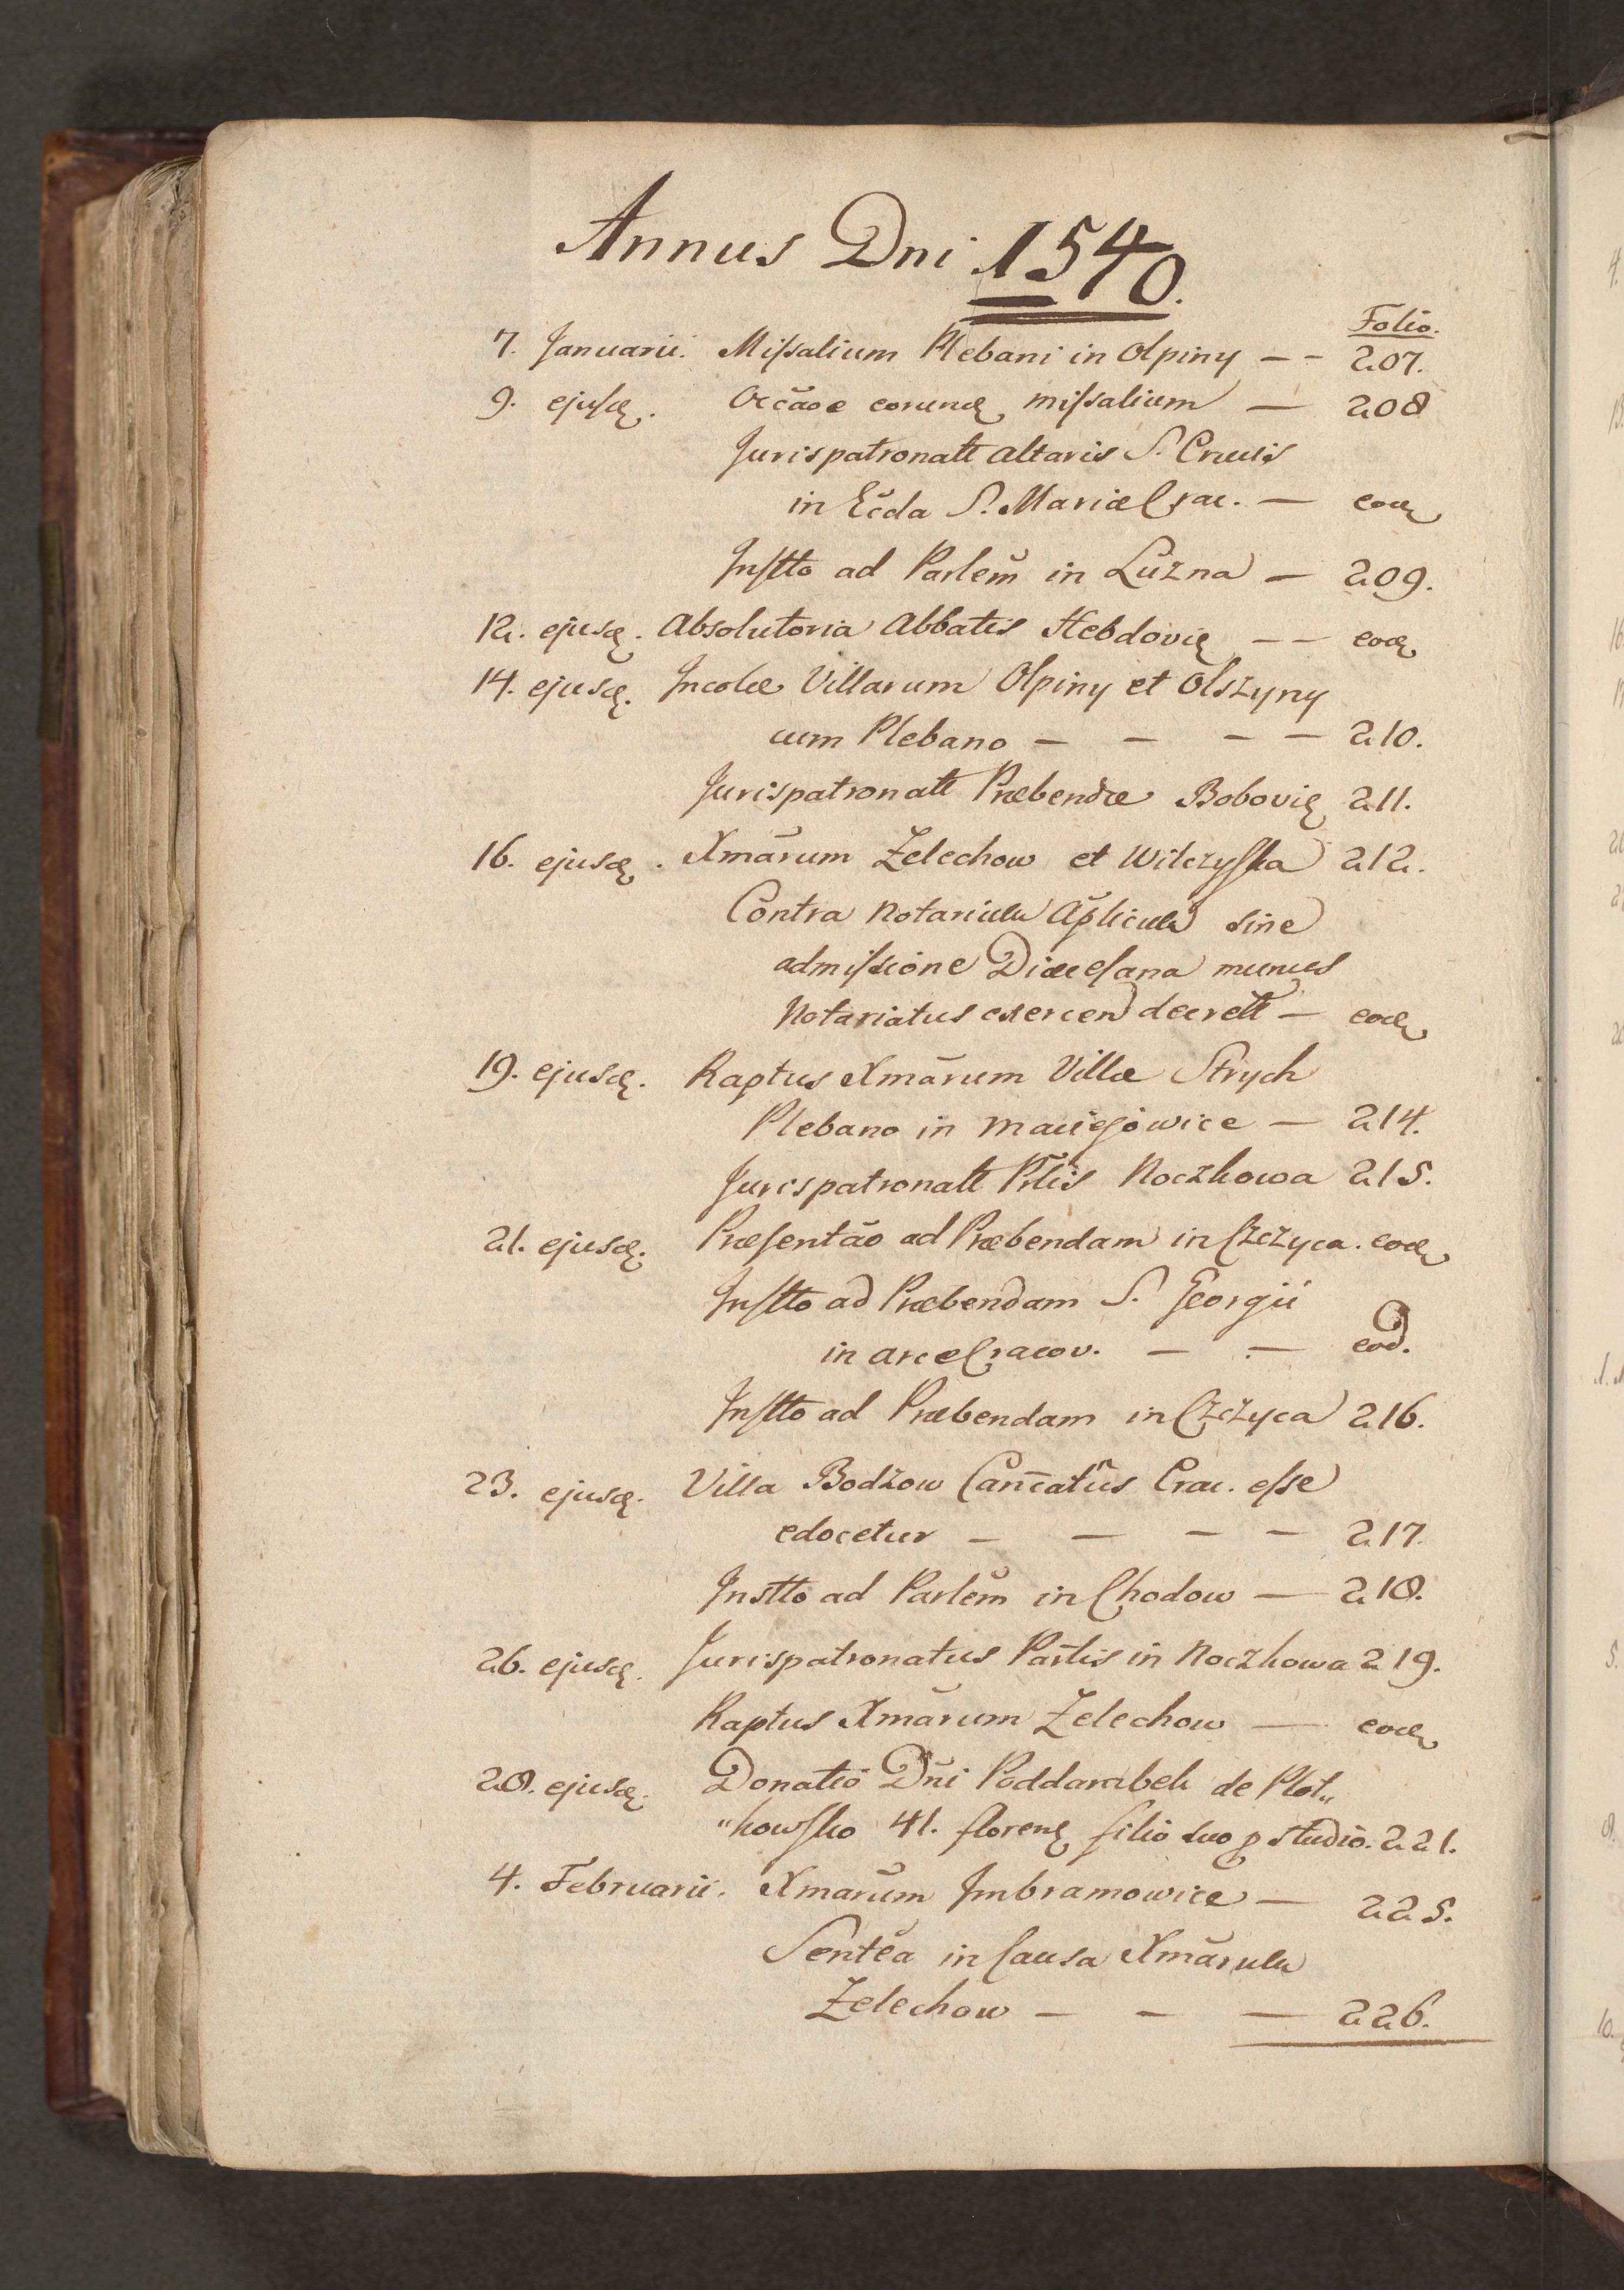 Annus Dni 1540.
Folio.
7. Januarii. Missalium Plebani in Olpiny — – 207.
9. ejusdę. Occãõe eorundę missalium — 208
Jurispatronatt altaris S. Crucis
in Eccla S. Mariæ Crac. — eodę
Instto ad Parlem in Luzna — 209.
12. ejusdę. Absolutoria Abbatis Hebdovię — — eodę
14. ejusdę. Incolæ Villarum Olpiny et Olszyny
cum Plebano — — — — 210.
Jurispatronatt Præbendæ Bobovię 211.
16. ejusdę. Xmãrum Żelechow et Wilczyska 212.
Contra Notarium Aplicum sine
admissione Diœcesana munus
Notariatus exercen decrett — eodę
19. ejusdę. Raptus Xmãrum Villæ Strych
Plebano in Maciejowice — 214.
Jurispatronatt Prlis Roczkowa 215.
21. ejusdę. Præsentão ad Præbendam in Czczyca. eodę
Instto ad Præbendam S. Georgii
in arce Cracov. — — eod.
Instto ad Præbendam in Czczyca 216.
23. ejusdę. Villa Bodzow Cancatus Crac. esse
edocetur — — — — 217.
Instto ad Parlem in Chodow — 218.
26. ejusdę. Jurispatronatus Partis in Noczkowa 219.
Raptus Xmãrum Żelechow — eodę
28. ejusdę. Donatio Dni Poddarabek de Plot„
„kowsko 41. florenę filio suo p studio. 221.
4. Februarii. Xmarum Imbramowice — 225.
Sentea in Causa Xmãrum
Żelechow — — — 226.